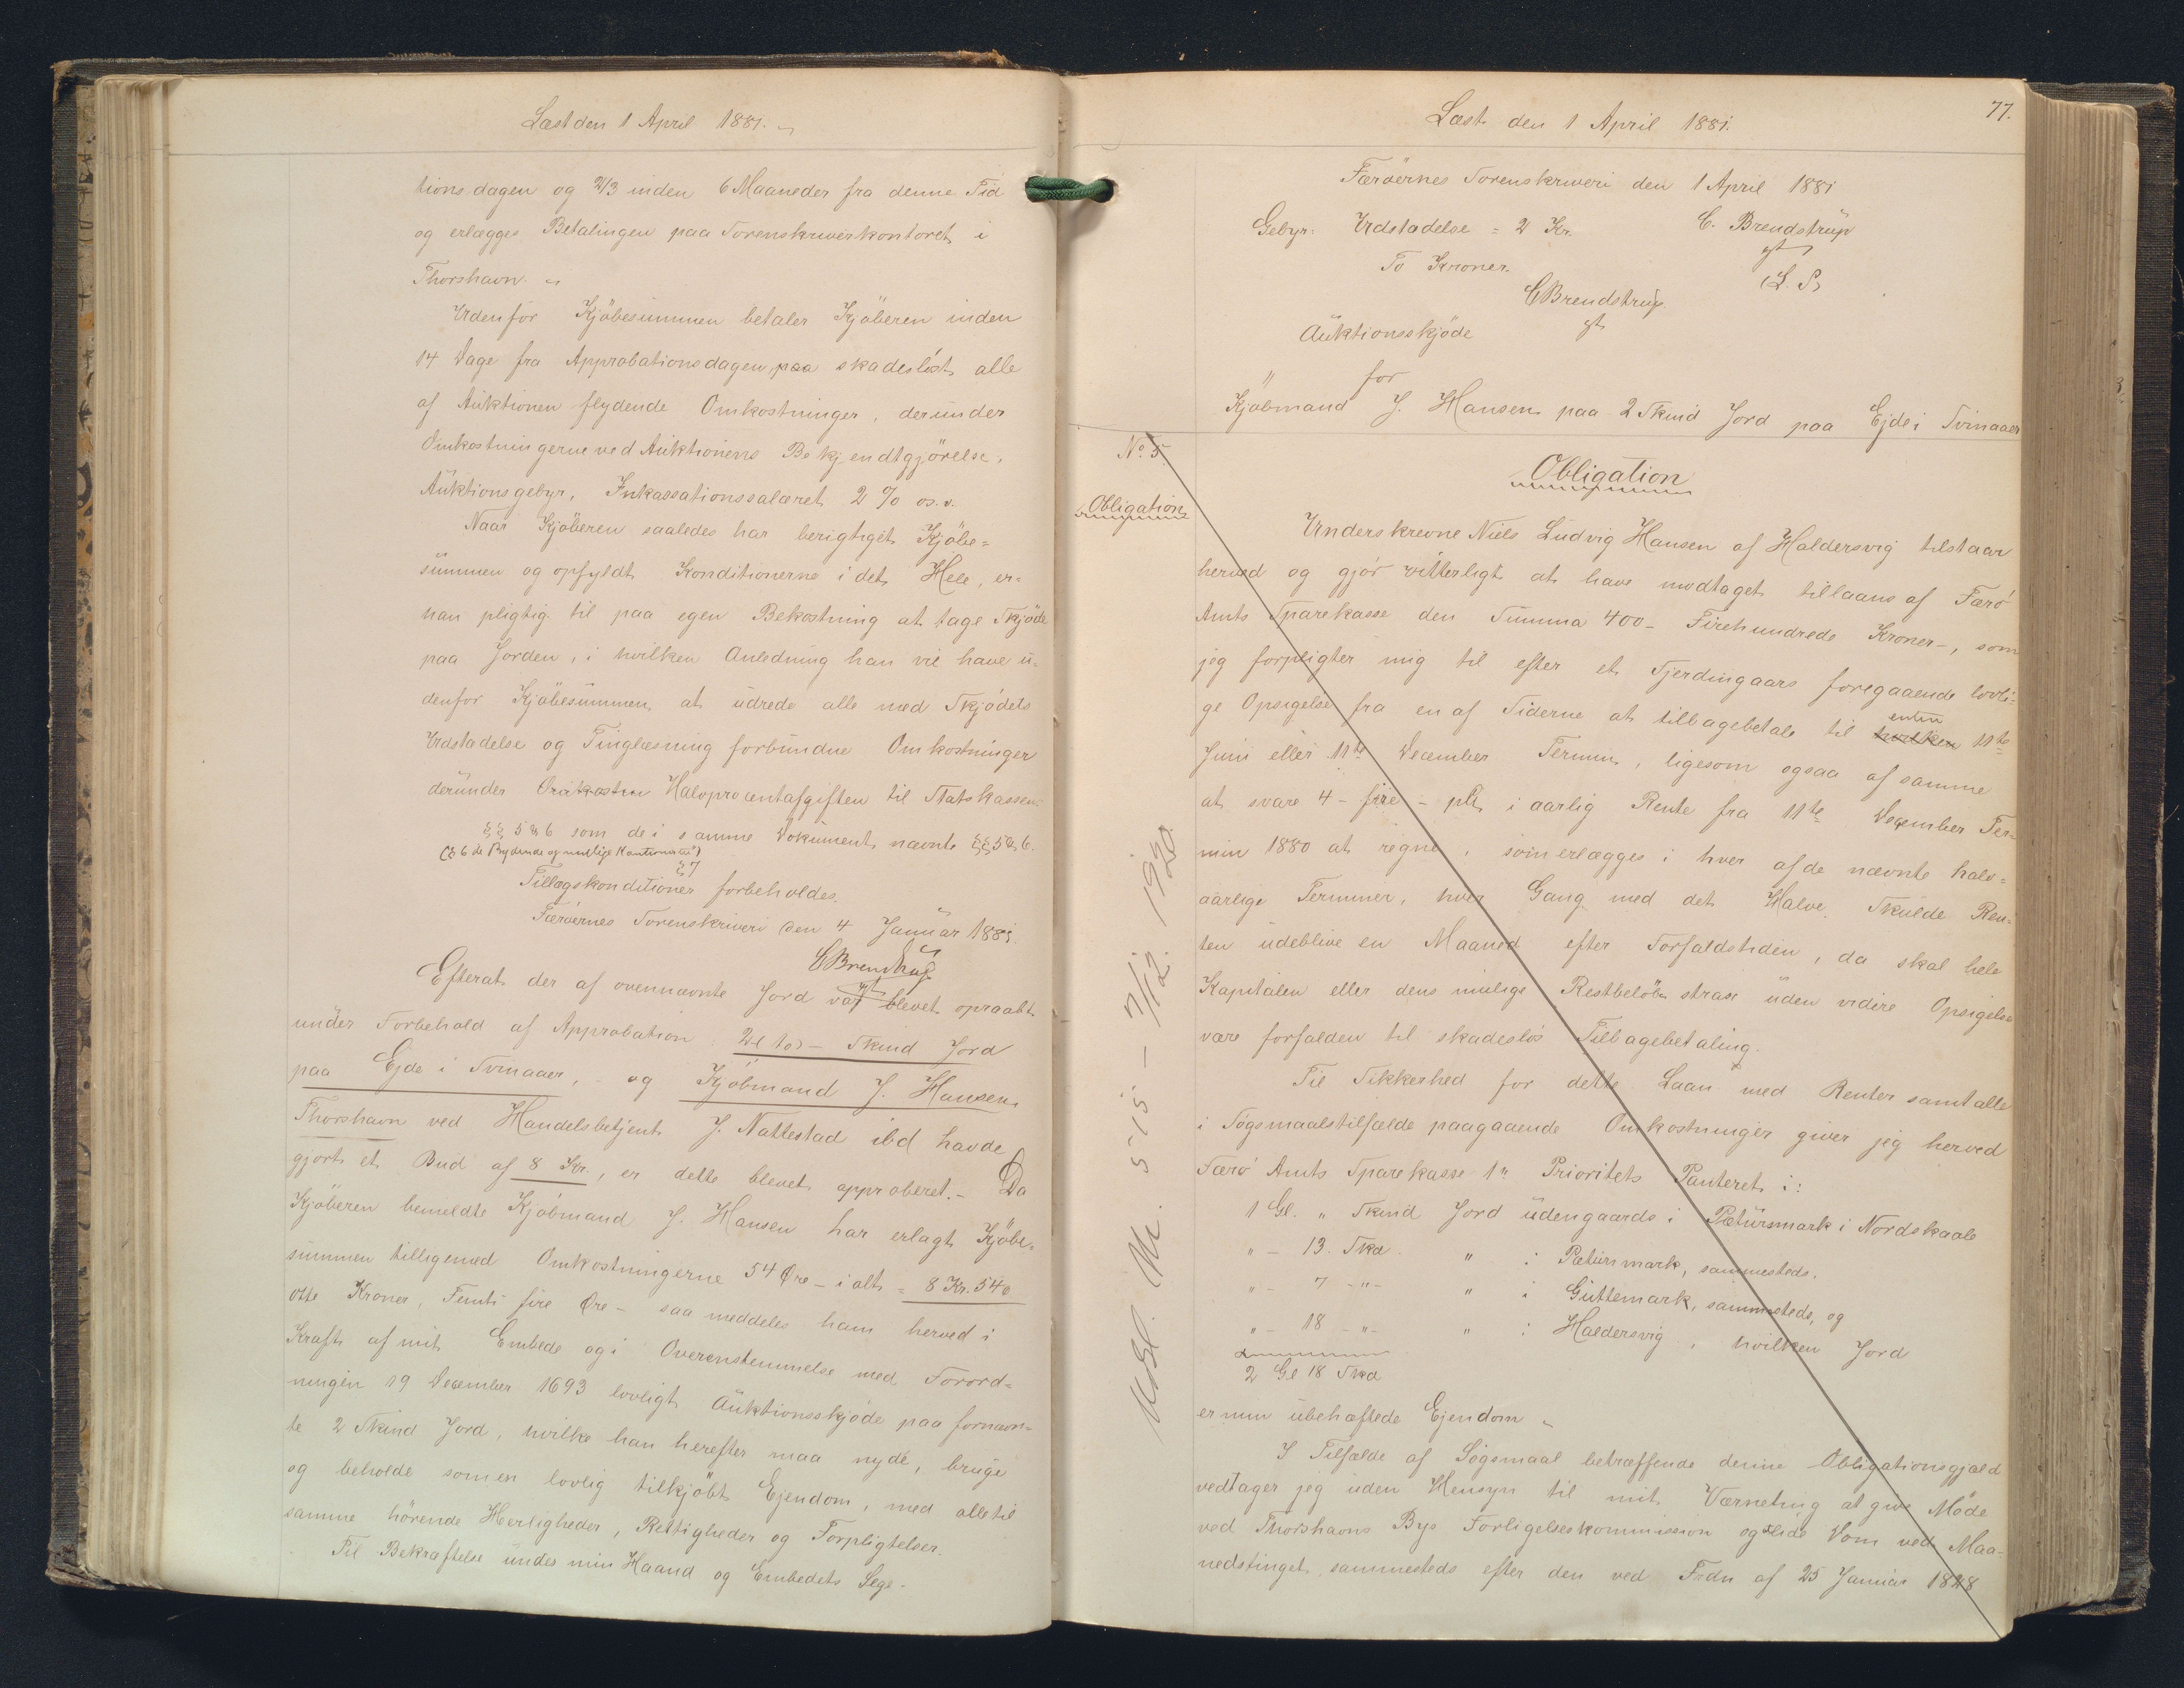 Læst den 1 April 1881.
tionsdagen og 2/3 inden 6 Maaneder fra denne Tid
og erlægges Betalingen paa Sorenskriverkontoret i
Thorshavn.
Udenfor Kjöbesummen betaler Kjöberen inden
14 Dage fra Approbationsdagen paa skadeslöst alle
af Auktionen flydende Omkostninger, derunder
Omkostningerne ved Auktionens Bekjendtgjörelse,
Auktionsgebyr, Inkassationssalæret 2 % os.v.
Naar Kjöberen saaledes har berigtiget Kjöbe=
summen og opfyldt Konditionerne i det Hele, er
han pligtig til paa egen Bekostning at tage Skjöde
paa Jorden, i hvilken Anledning han vil have u=
denfor Kjöbesummen at udrede alle med Skjödets
Udstedelse og Tinglæsning forbundne Omkostninger
derunder Omkosten Halvprocentafgiften til Statskassen.
§§ 5 & 6 som de i samme Dokument nævnte §§ 5 & 6.
(§ 6 de Bydende og mulige Kautionister)
§ 7
Tillægskonditioner forbeholdes.
Færöernes Sorenskriveri den 4 Januar 1881.
CBrendstrup
gt
Efterat der af ovennævnte Jord var blevet opraabt
under Forbehold af Approbation: 2 (to) - Skind Jord
paa Ejde i Svinaaer, - og Kjöbmand J. Hansen,
Thorshavn ved Handelsbetjent J. Nattestad ibd havde
gjort et Bud af 8 Kr., er dette blevet approberet. - Da
Kjöberen bemeldte Kjöbmand J. Hansen har erlagt Kjöbe=
summen tilligemed Omkostningerne 54 Øre - ialt = 8 Kr. 54 ø
otte Kroner, Femti fire Øre - saa meddeles ham herved i
Kraft af mit Embede og i Overenstemmelse med Forord=
ningen 19 December 1693 lovligt Auktionsskjöde paa fornævn=
te 2 Skind Jord, hvilke han herefter maa nyde, bruge
og beholde som en lovlig tilkjöbt Ejendom, med alle til
samme hörende Herligheder, Rettigheder og Forpligtelser.
Til Bekræftelse under min Haand og Embedets Segl.
77.
Læst den 1 April 1881.
Færöernes Sorenskriveri den 1 April 1881
Gebyr: Udstedelse = 2 Kr. C. Brendstrup
To Kroner. gt
(L. S)
CBrendstrup
gt
Auktionsskjöde
for
Kjöbmand J. Hansen paa 2 Skind Jord paa Ejde i Svinaaer
No. 5.
Obligation
Obligation
Underskrevne Niels Ludvig Hansen af Haldersvig tilstaar
herved og gjör vitterligt at have modtaget tillaans af Færö
Amts Sparekasse den Summa 400 - Firehundrede Kroner -, som
jeg forpligter mig til efter et Fjerdingaars foregaaende lovli=
ge Opsigelse fra en af Siderne at tilbagebetale til hvilken enten 11te
Juni eller 11te December Termin, ligesom ogsaa af samme
at svare 4 - fire - pCt i aarlig Rente fra 11te December Ter=
min 1880 at regne, som erlægges i hver af de nævnte halv=
aarlige Terminer, hver Gang med det Halve. Skulde Ren=
ten udeblive en Maaned efter Forfaldstiden, da skal hele
Kapitalen eller dens mulige Restbelöb strax uden videre Opsigelse
være forfalden til skadeslös Tilbagebetaling.
Til Sikkerhed for dette Laan med Renter samt alle
i Sögsmaalstilfælde paagaaende Omkostninger giver jeg herved
Færö Amts Sparekasse 1ste Prioritets Panteret i:
1 Gl. " Skind Jord udengaards i Pætursmark i Nordskaale
" - 13. Skd. " i Pætursmark, sammesteds.
" - 7 - " - " i Guttemark, sammesteds, og
" - 18 - " - " i Haldersvig, hvilken Jord
2 Gl 18 Skd
er min ubehæftede Ejendom
I Tilfælde af Sögsmaal betræffende denne Obligationsgjæld
vedtager jeg uden Hensyn til mit Værneting at give Möde
ved Thorshavns Bys Forligelseskommission og lide Dom ved Maa=
nedstinget sammesteds efter den ved Frdn af 25 Januar 1828
Udsl. 5/15 - 7/12. 1920.